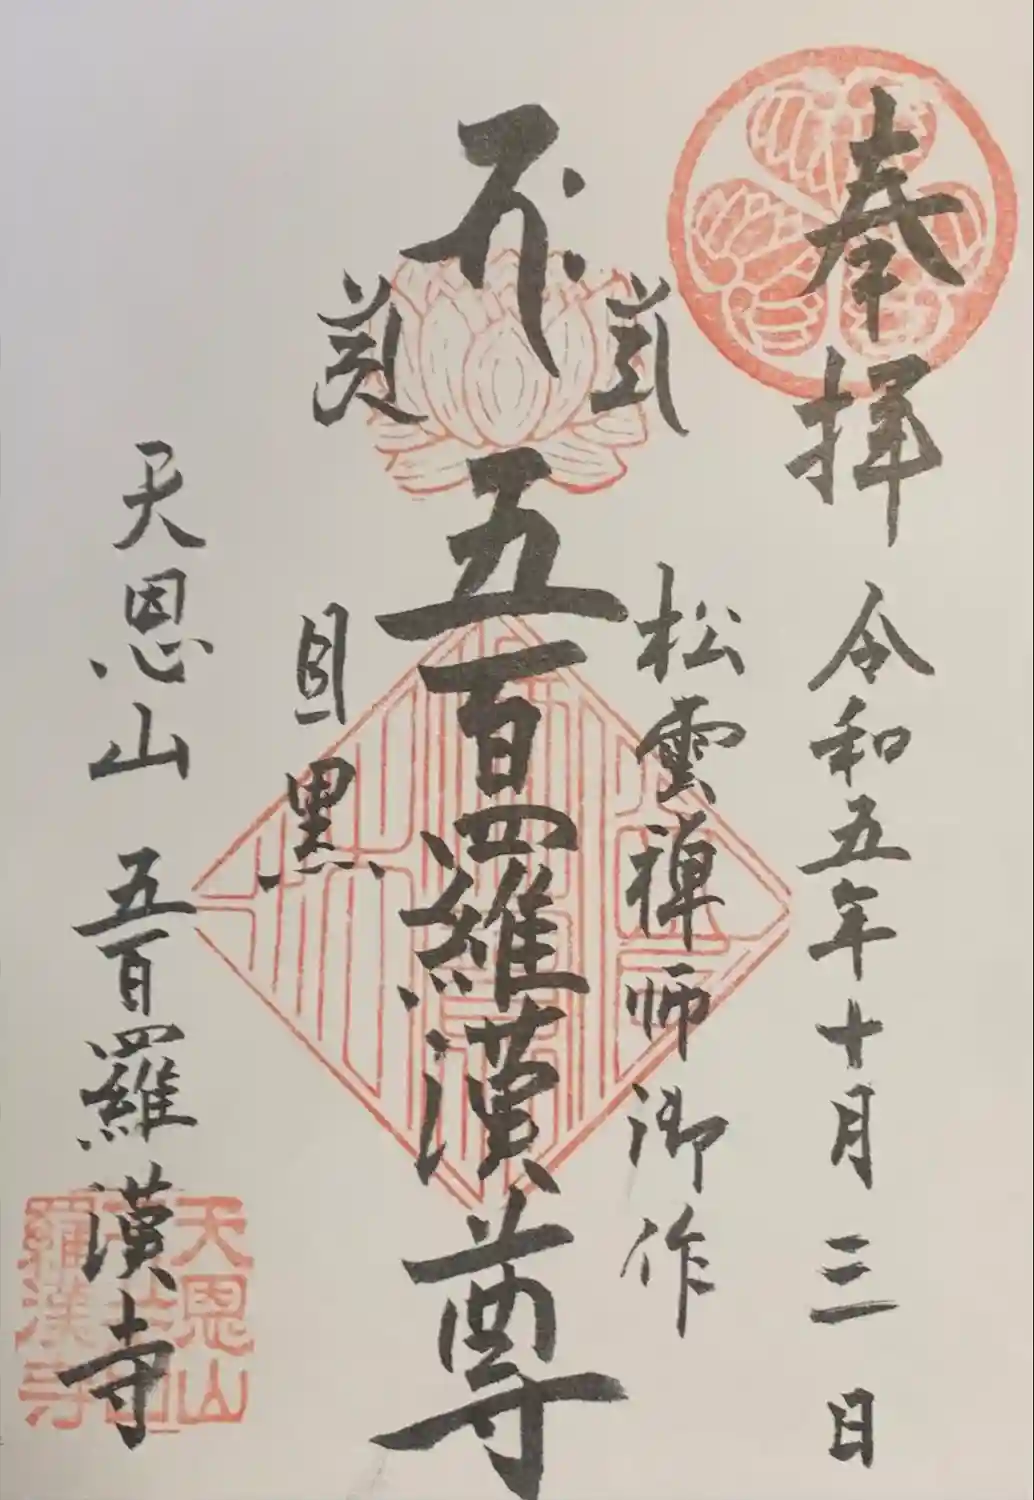 奉拝
令和五年十月三日
松雲禅師御作
五百羅漢尊
目黒
天恩山 五百羅漢寺
天恩山
五百
羅漢寺